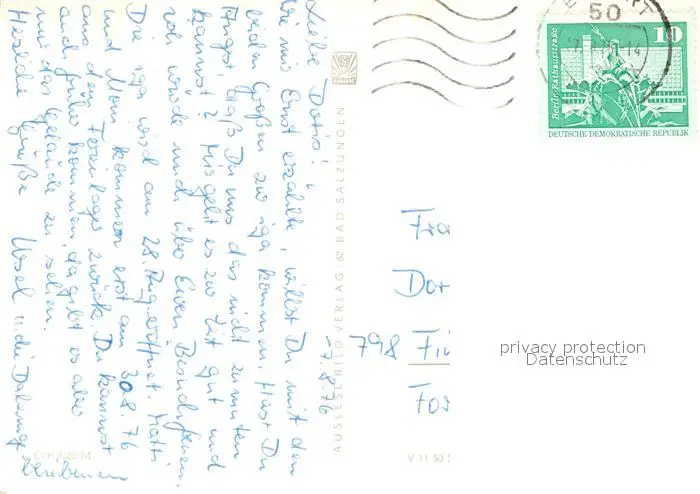 -7.8.76
Liebe Doris!
Wie mir Ernst erzählte, willst Du mit den
beiden Großen zur iga kommen. Hast Du
Angst, daß Du uns das nicht zumuten
kannst? Mir geht es zur Zeit gut und
ich würde mich über Euren Besuch freuen.
Die iga wird am 28. Aug. eröffnet. Matti
und Moni kommen erst am 30.8.76
aus dem Ferienlager zurück. Du kannst
auch früher kommen, da gibt es aber
nur das Gelände zu sehen.
Herzliche Grüße Ursel u. die Daheimge-
bliebenen
AUSLESEBILD VERLAG 62 BAD SALZUNGEN
V 11 50
50
10
Berlin, Rathausstraße
DEUTSCHE DEMOKRATISCHE REPUBLIK
Fra
Dor
798 Fi
Fos
privacy protection
Datenschutz